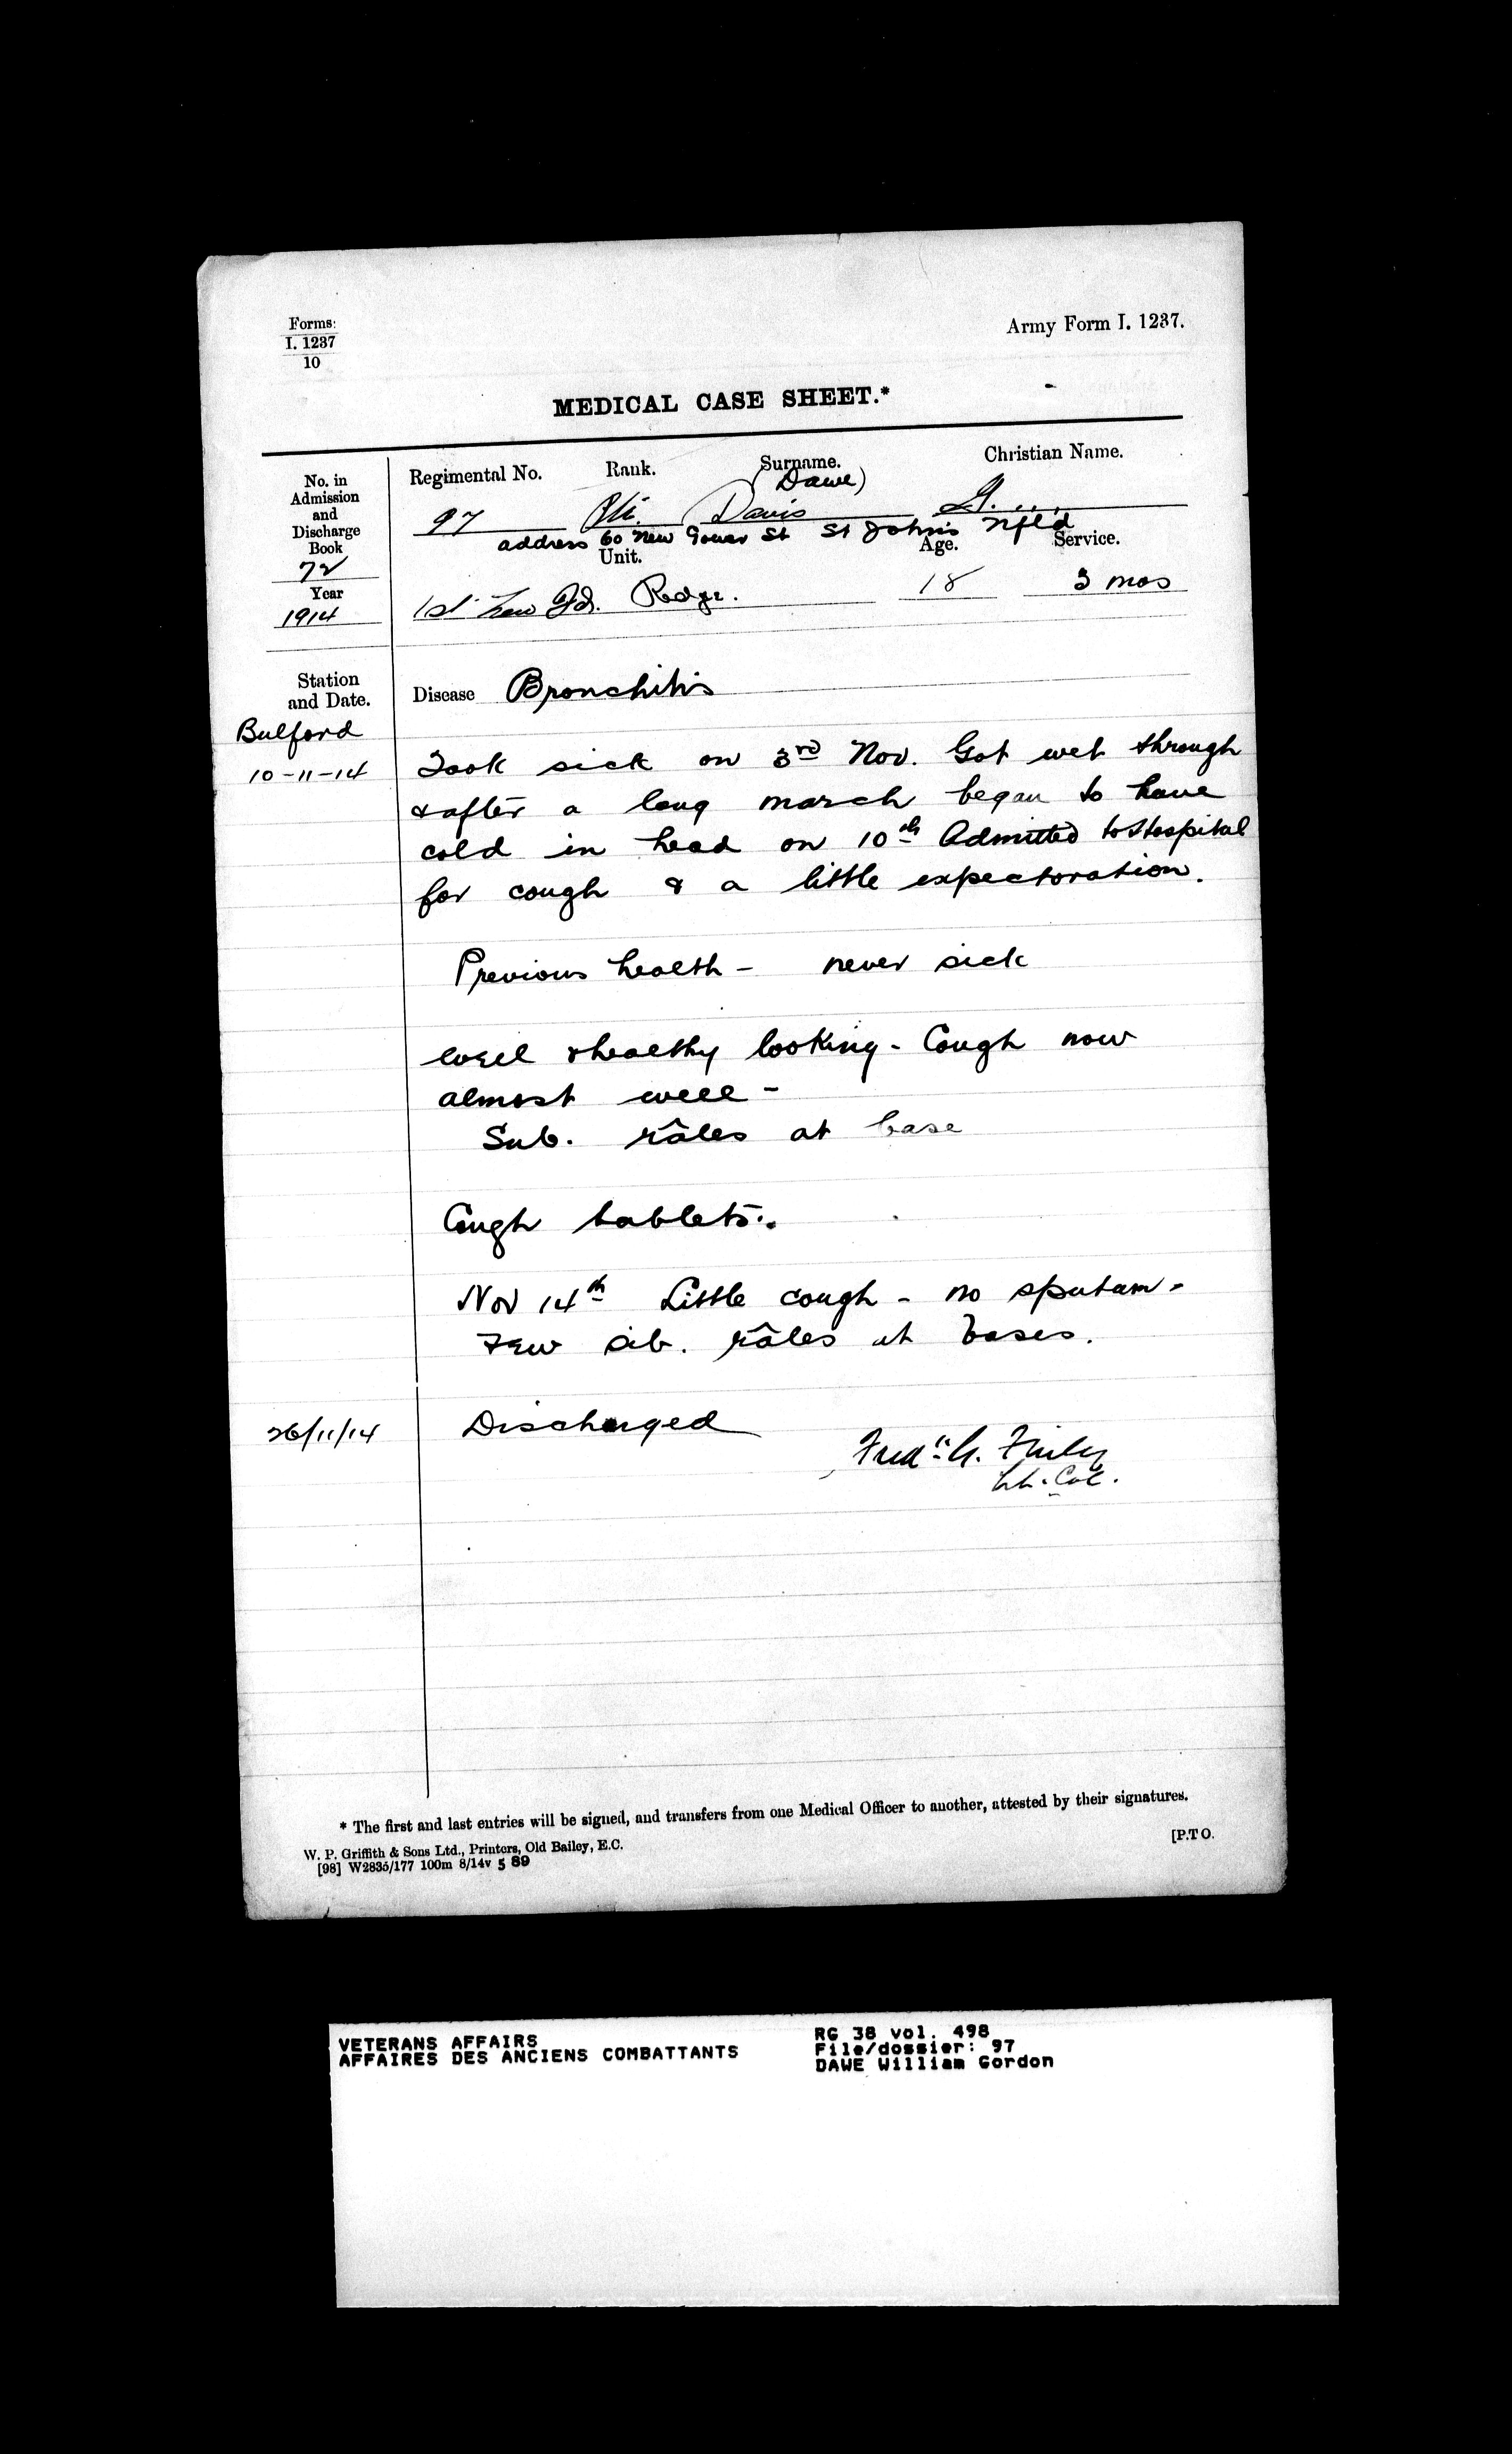 Forms:
I. 1237
10
Army Form I. 1237.
MEDICAL CASE SHEET.*
No. in
Admission
and
Discharge
Book
72
Year
1914
Regimental No. Rank. Surname. Christian Name.
(Dawe)
97 Pte. Davis G.
address 60 New Gower St St John's Nfl'd
Unit. Age. Service.
1st New Fd. Redge. 18 3 mos
Station
and Date.
Disease Bronchitis
Bulford
10-11-14
Took sick on 3rd Nov. Got wet through
& after a long march began to have
cold in head on 10th Admitted to Hospital
for cough & a little expectoration.
Previous health - never sick
Well & healthy looking - Cough now
almost well -
Sub. râles at base
Cough tablets.
Nov 14th Little cough - no sputum -
Few sib. râles at bases.
26/11/14 Discharged
Fredk G. Finley
Lt. Col.
* The first and last entries will be signed, and transfers from one Medical Officer to another, attested by their signatures.
W. P. Griffith & Sons Ltd., Printers, Old Bailey, E.C.
[98] W2835/177 100m 8/14v 5 89
[P.T O.
VETERANS AFFAIRS
AFFAIRES DES ANCIENS COMBATTANTS
RG 38 vol. 498
File/dossier: 97
DAWE William Gordon